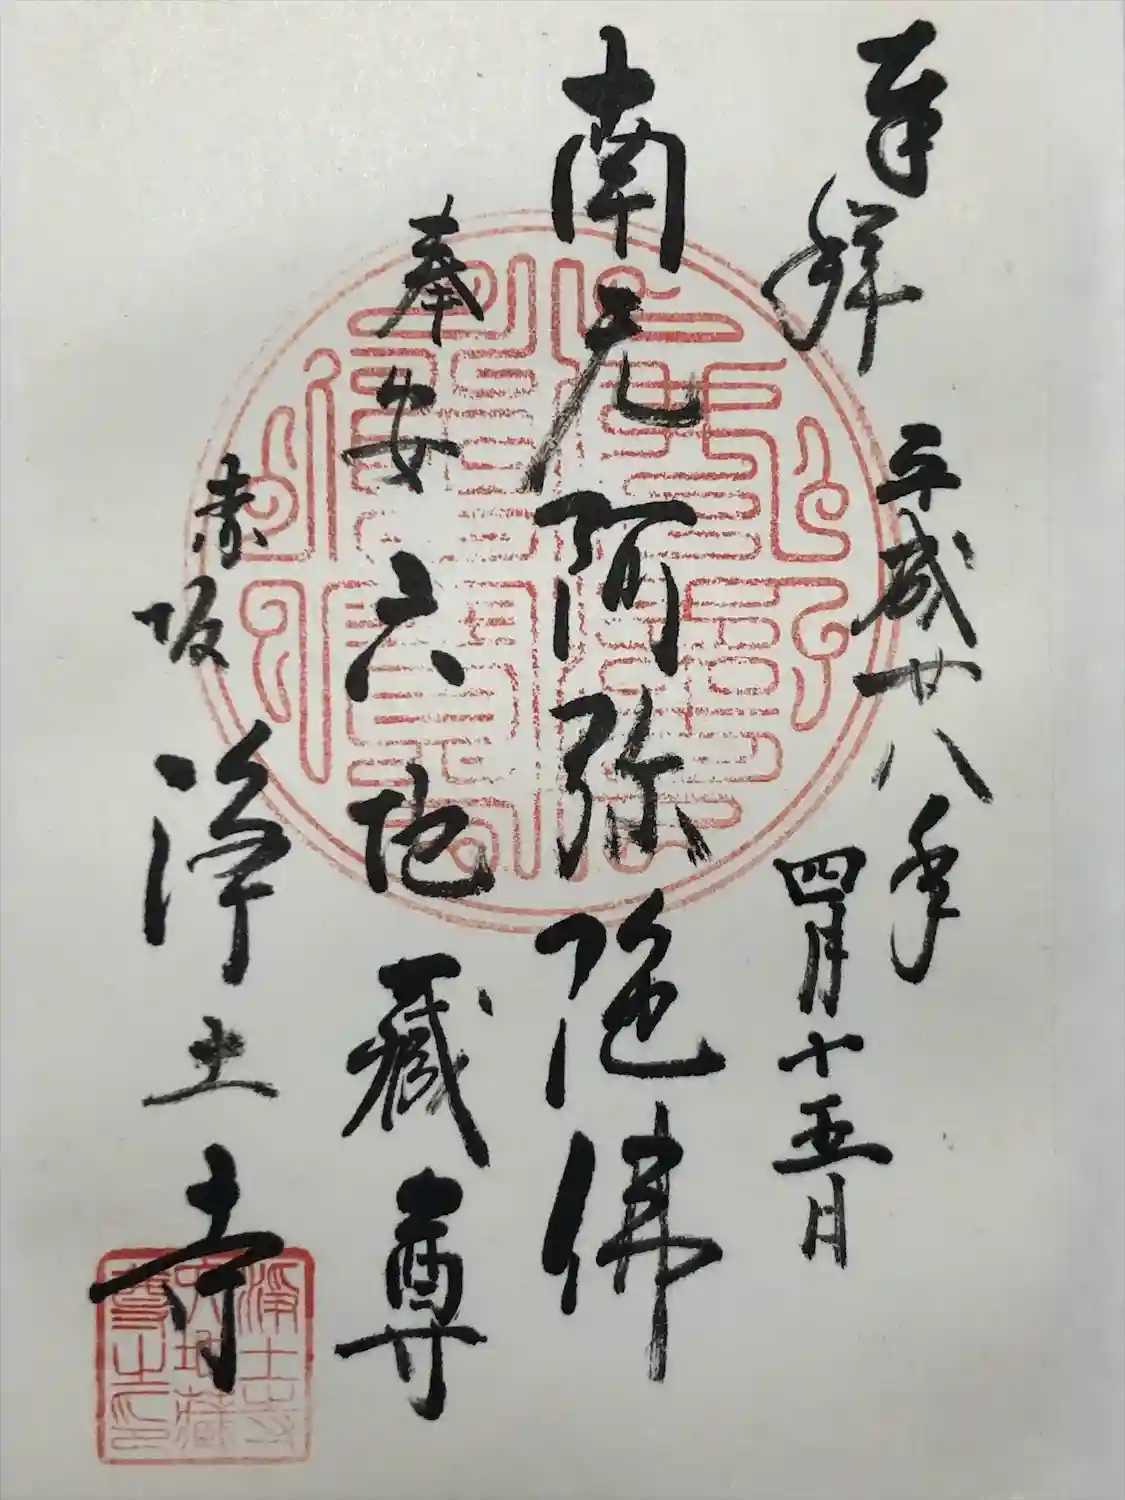 奉拝
平成廿八年
四月十五日
南无阿弥陀佛
奉安六地蔵尊
赤坂
浄土寺